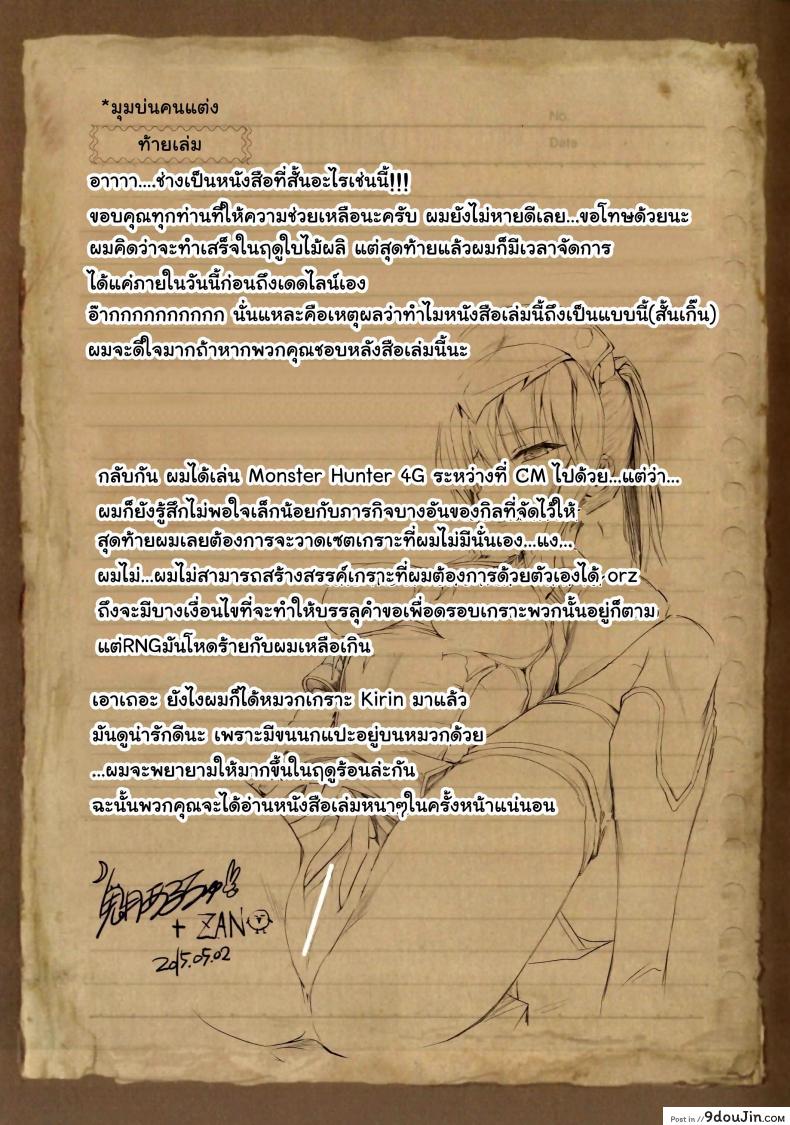 *มุมบ่นคนแต่ง
No.
Date
ท้ายเล่ม
อาาาา....ช่างเป็นหนังสือที่สั้นอะไรเช่นนี้!!!
ขอบคุณทุกท่านที่ให้ความช่วยเหลือนะครับ ผมยังไม่หายดีเลย...ขอโทษด้วยนะ
ผมคิดว่าจะทำเสร็จในฤดูใบไม้ผลิ แต่สุดท้ายแล้วผมก็มีเวลาจัดการ
ได้แค่ภายในวันนี้ก่อนถึงเดดไลน์เอง
อ๊ากกกกกกกกกกก นั่นแหละคือเหตุผลว่าทำไมหนังสือเล่มนี้ถึงเป็นแบบนี้(สั้นเกิ๊น)
ผมจะดีใจมากถ้าหากพวกคุณชอบหลังสือเล่มนี้นะ
กลับกัน ผมได้เล่น Monster Hunter 4G ระหว่างที่ CM ไปด้วย...แต่ว่า...
ผมก็ยังรู้สึกไม่พอใจเล็กน้อยกับภารกิจบางอันของกิลที่จัดไว้ให้
สุดท้ายผมเลยต้องการจะวาดเซตเกราะที่ผมไม่มีนั่นเอง...แง...
ผมไม่...ผมไม่สามารถสร้างสรรค์เกราะที่ผมต้องการด้วยตัวเองได้ orz
ถึงจะมีบางเงื่อนไขที่จะทำให้บรรลุคำขอเพื่อดรอบเกราะพวกนั้นอยู่ก็ตาม
แต่RNGมันโหดร้ายกับผมเหลือเกิน
เอาเถอะ ยังไงผมก็ได้หมวกเกราะ Kirin มาแล้ว
มันดูน่ารักดีนะ เพราะมีขนนกแปะอยู่บนหมวกด้วย
...ผมจะพยายามให้มากขึ้นในฤดูร้อนล่ะกัน
ฉะนั้นพวกคุณจะได้อ่านหนังสือเล่มหนาๆในครั้งหน้าแน่นอน
+ ZAN
2015.05.02
Post in // 9douJin.com